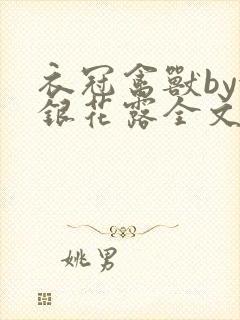 衣冠禽獸by
銀花露全文
姚男